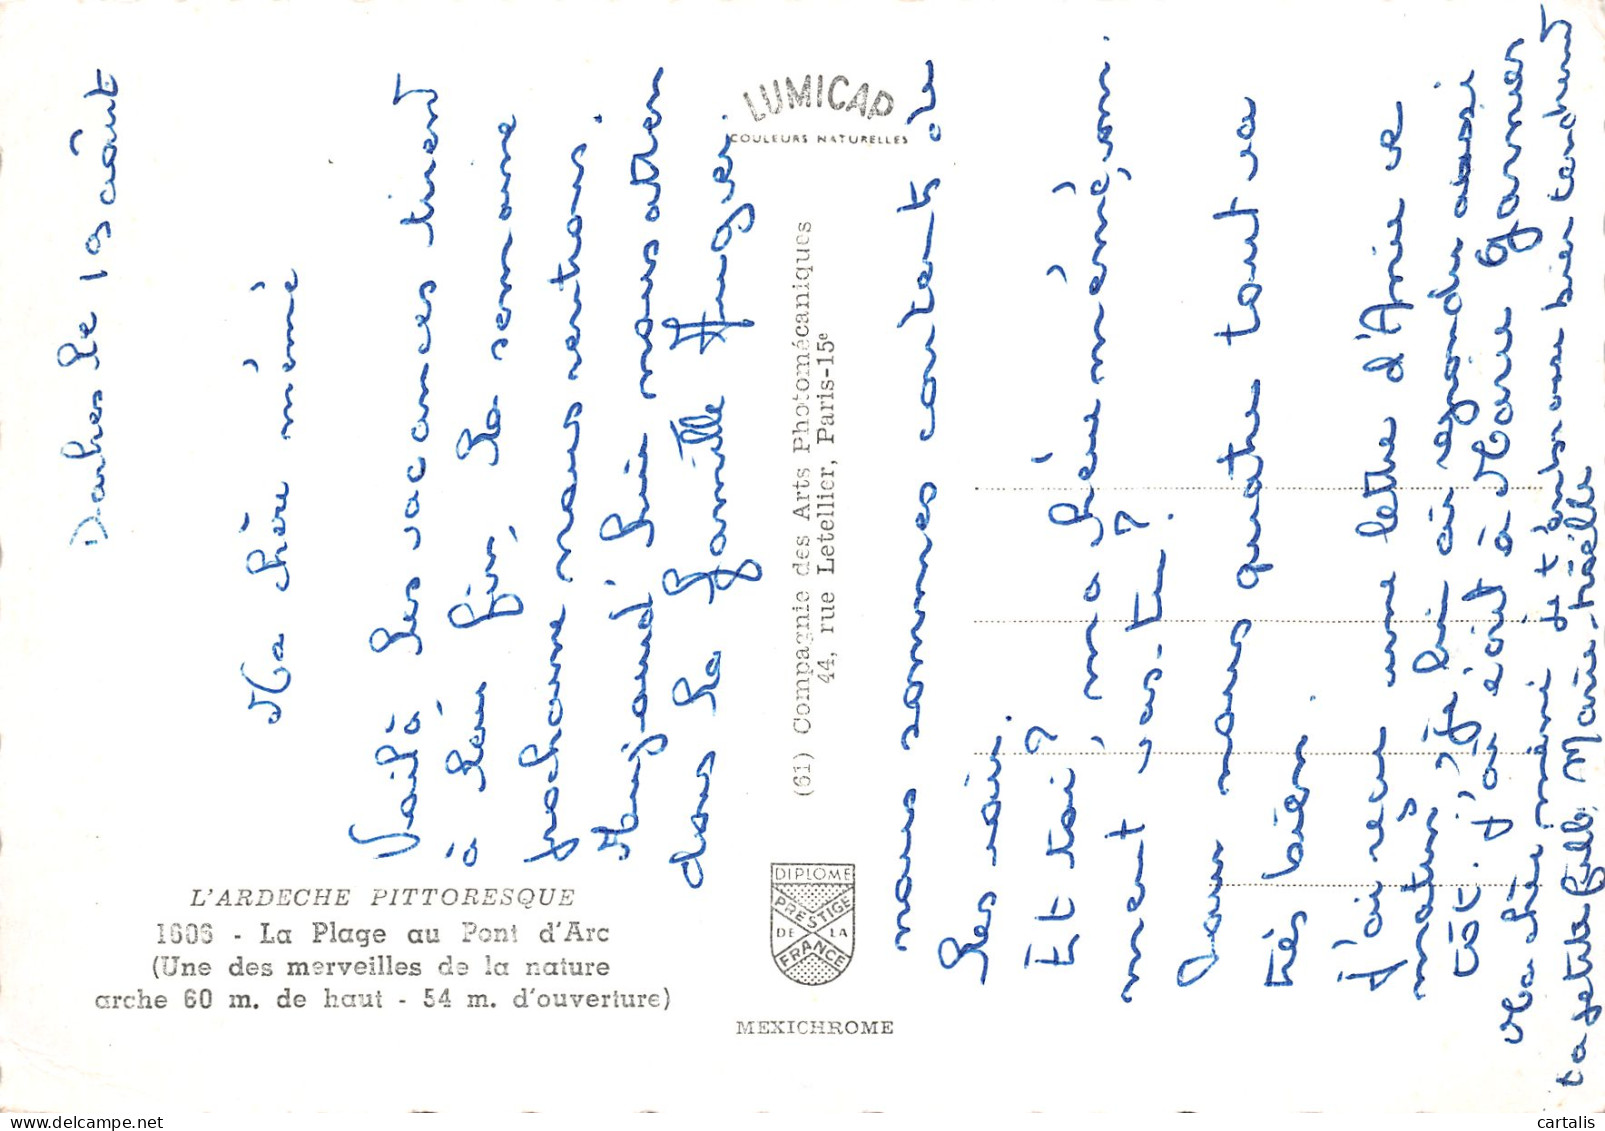 LUMICAP
COULEURS NATURELLES
L'ARDECHE PITTORESQUE
1606 - La Plage au Pont d'Arc
(Une des merveilles de la nature
arche 60 m. de haut - 54 m. d'ouverture)
(61) Compagnie des Arts Photomécaniques
44, rue Letellier, Paris-15e
DIPLOME
PRESTIGE
DE LA
FRANCE
MEXICHROME
le 19 août
Ma chère mémé
Voilà les vacances tirent
à leur fin, la semaine
prochaine nous rentrons.
Aujourd'hui nous atten
dons la famille
nous sommes contents de
les voir.
Et toi? ma chère mémé, com
ment vas-tu?
Pour nous quatre tout va
très bien.
J'ai reçu une lettre d'Annie ce
matin, je lui ai répondu aussi
tôt. J'ai écrit à Marie Garnier
Ma chère mémé je t'embrasse bien tendrement
ta petite fille, Marie-Noëlle